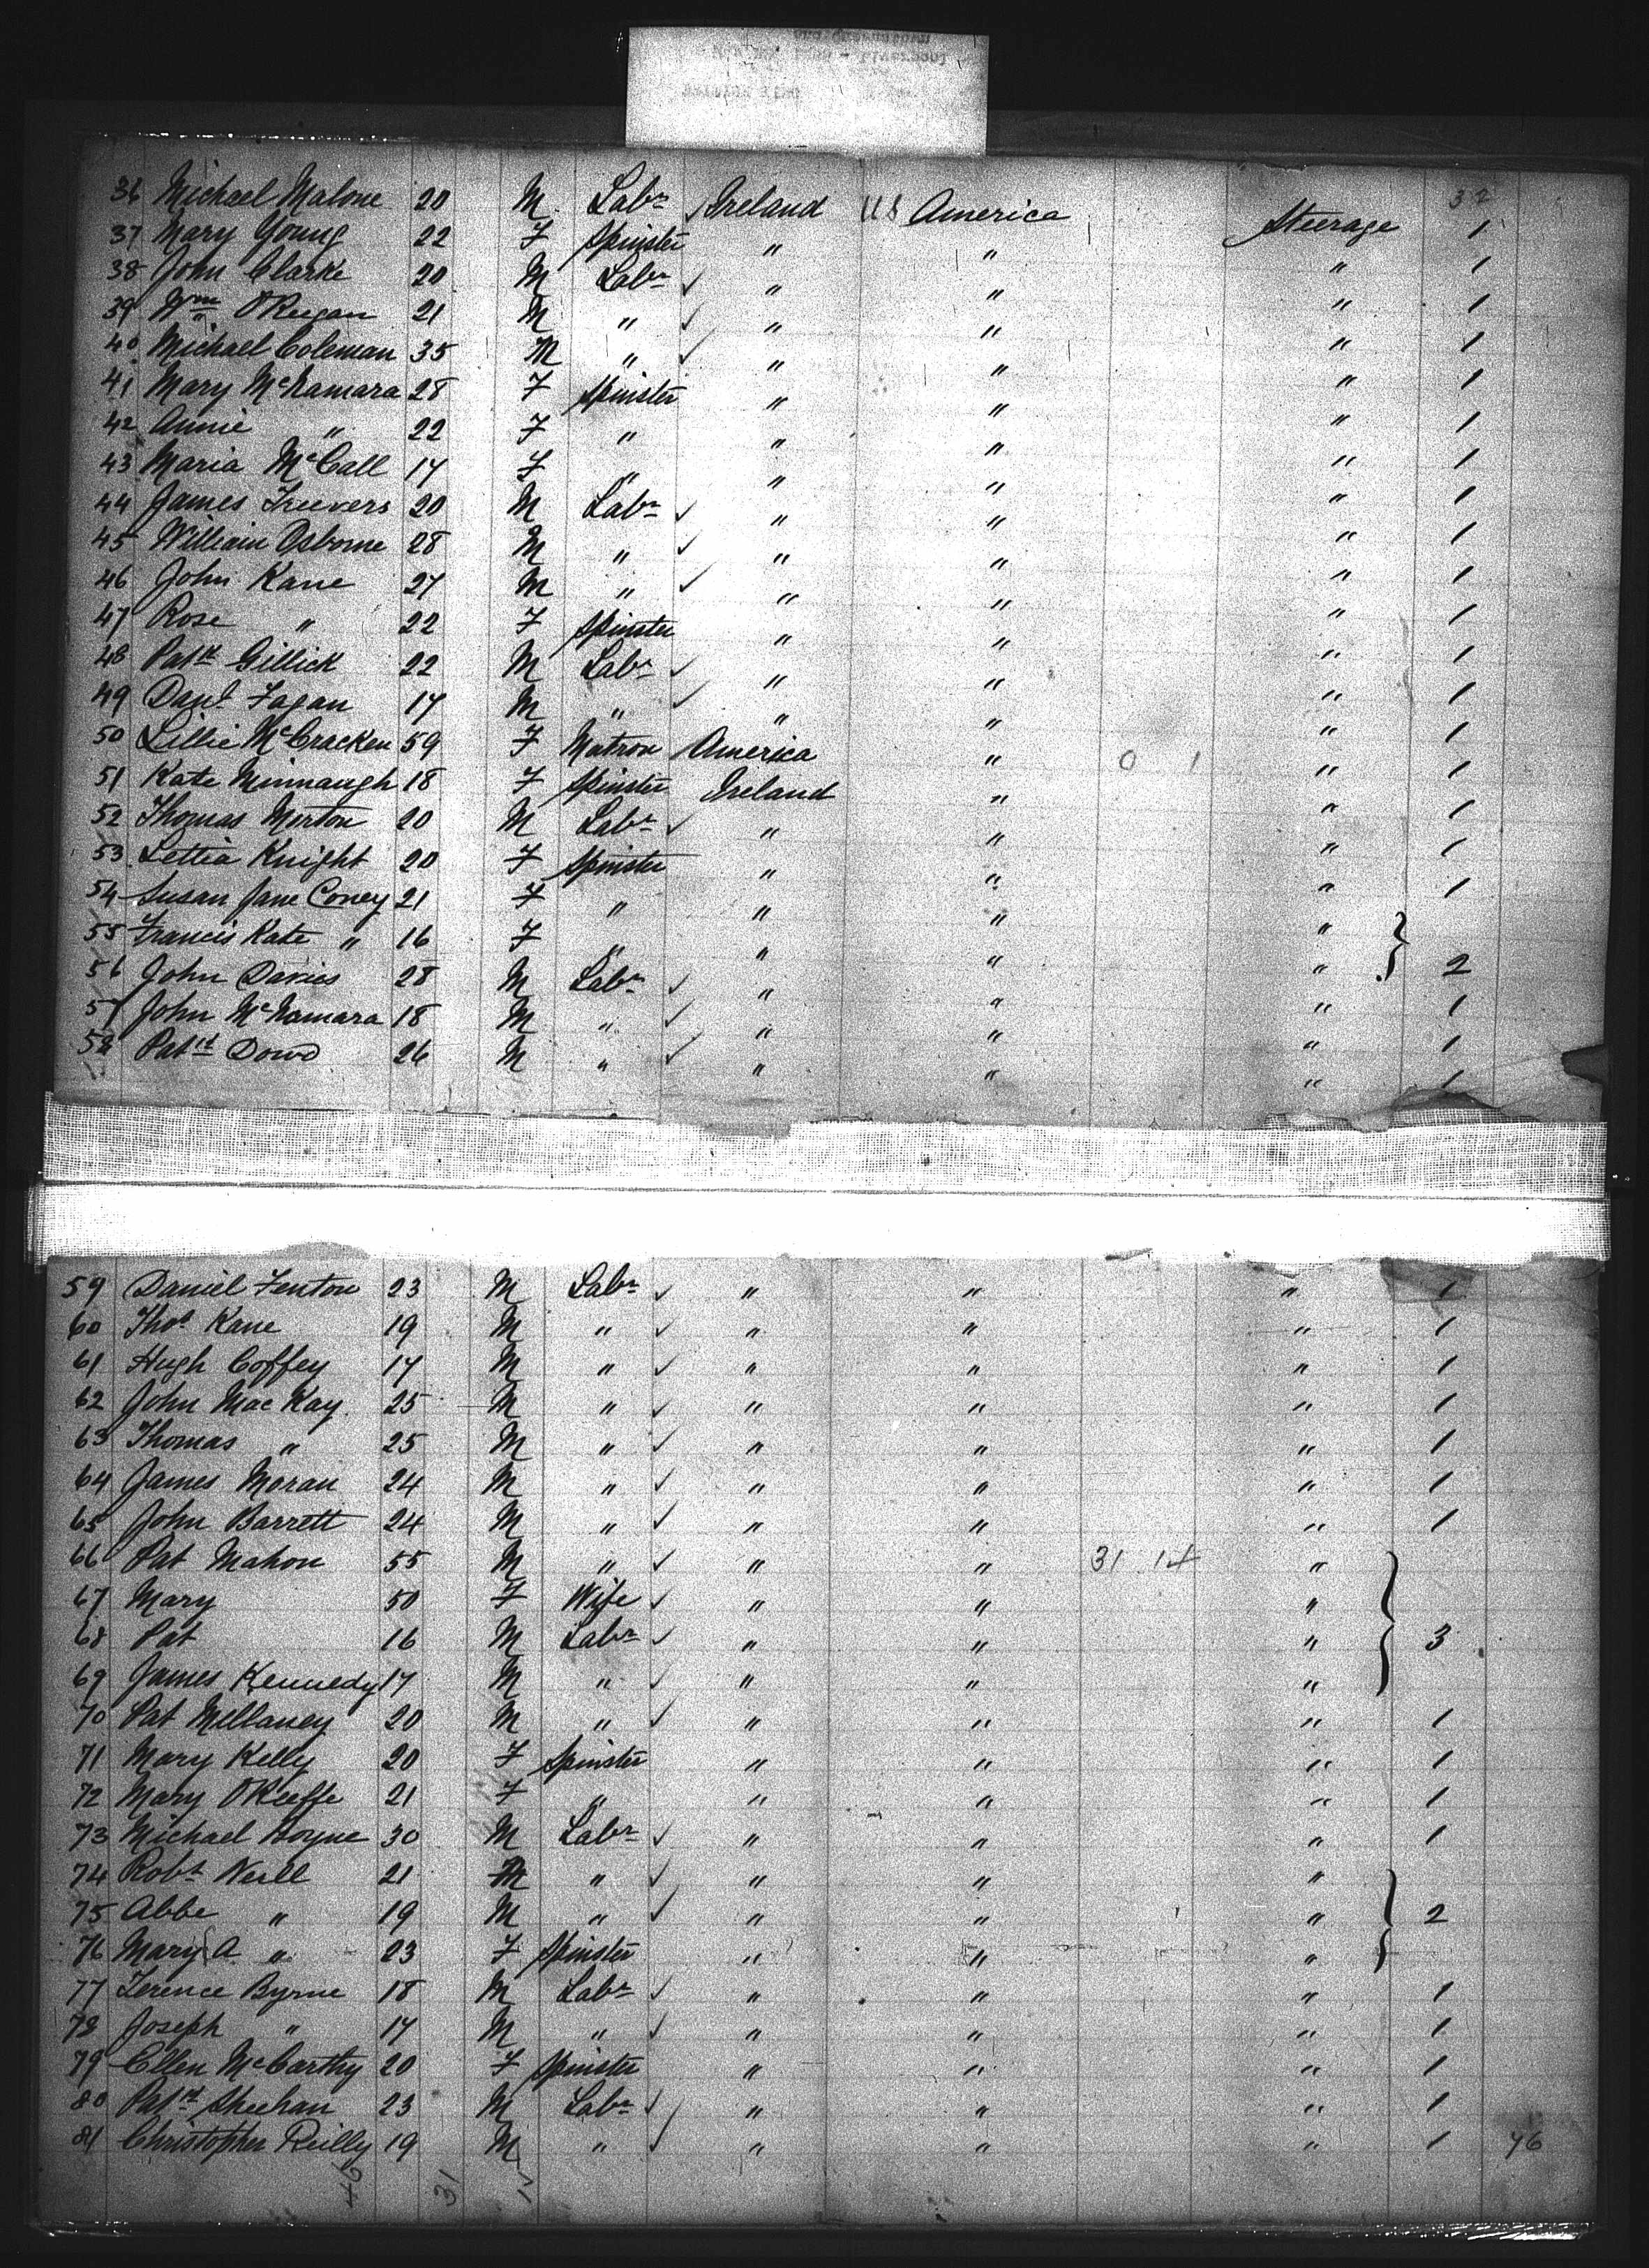 32
36 Michael Malone 20 M Labr Ireland US America Steerage 1
37 Mary Young 22 F Spinster " " " 1
38 John Clarke 20 M Labr " " " 1
39 Wm O'Regan 21 M " " " " 1
40 Michael Coleman 35 M " " " " 1
41 Mary McNamara 28 F Spinster " " " 1
42 Annie " 22 F " " " " 1
43 Maria McCall 17 F " " " " 1
44 James Treevers 20 M Labr " " " 1
45 William Osborne 28 M " " " " 1
46 John Kane 27 M " " " " 1
47 Rose " 22 F Spinster " " " 1
48 Patk Gillick 22 M Labr " " " 1
49 Danl Fagan 17 M " " " " 1
50 Lillie McCracken 59 F Matron America " 0 1 " 1
51 Kate Minnaugh 18 F Spinster Ireland " " 1
52 Thomas Morton 20 M Labr " " " 1
53 Lettia Knight 20 F Spinster " " " 1
54 Susan Jane Coney 21 F " " " "
55 Francis Kate " 16 F " " " " 2
56 John Davies 28 M Labr " " " 1
57 John McNamara 18 M " " " " 1
58 Patk Dowd 26 M " " " " 1
59 Daniel Fenton 23 M Labr " " " 1
60 Thos Kane 19 M " " " " 1
61 Hugh Coffey 17 M " " " " 1
62 John Mac Kay 25 M " " " " 1
63 Thomas " 25 M " " " " 1
64 James Moran 24 M " " " " 1
65 John Barrett 24 M " " " " 1
66 Pat Mahon 55 M " " " 31 14 "
67 Mary 50 F Wife " " "
68 Pat 16 M Labr " " " 3
69 James Kennedy 17 M " " " "
70 Pat Mellaney 20 M " " " " 1
71 Mary Kelly 20 F Spinster " " " 1
72 Mary O'Keeffe 21 F " " " " 1
73 Michael Boyne 30 M Labr " " " 1
74 Robt Neill 21 M " " " "
75 Abbe " 19 M " " " " 2
76 Mary A " 23 F Spinster " " "
77 Terence Byrne 18 M Labr " " " 1
78 Joseph " 17 M " " " " 1
79 Ellen McCarthy 20 F Spinster " " " 1
80 Patk Sheehan 23 M Labr " " " 1
81 Christopher Reilly 19 M " " " " 1 46
46 31 15